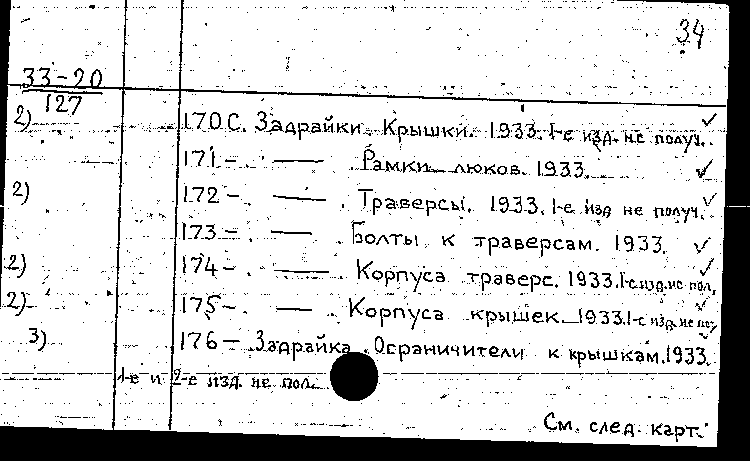 34
33-20
127
2) 170 С. Задрайки. Крышки. 1933. 1-е изд. не получ. ✓
171 - . —— . Рамки люков. 1933. ✓
2) 172 - . —— . Траверсы. 1933. 1-е изд не получ. ✓
173 - . —— . Болты к траверсам. 1933. ✓
2) 174 - . —— . Корпуса траверс. 1933. 1-е изд. не пол. ✓
2) 175 - . —— . Корпуса крышек. 1933. 1-е изд. не по ✓
3) 176 - Задрайка. Ограничители к крышкам. 1933. ✓
1-е и 2-е изд. не пол.
См. след. карт.